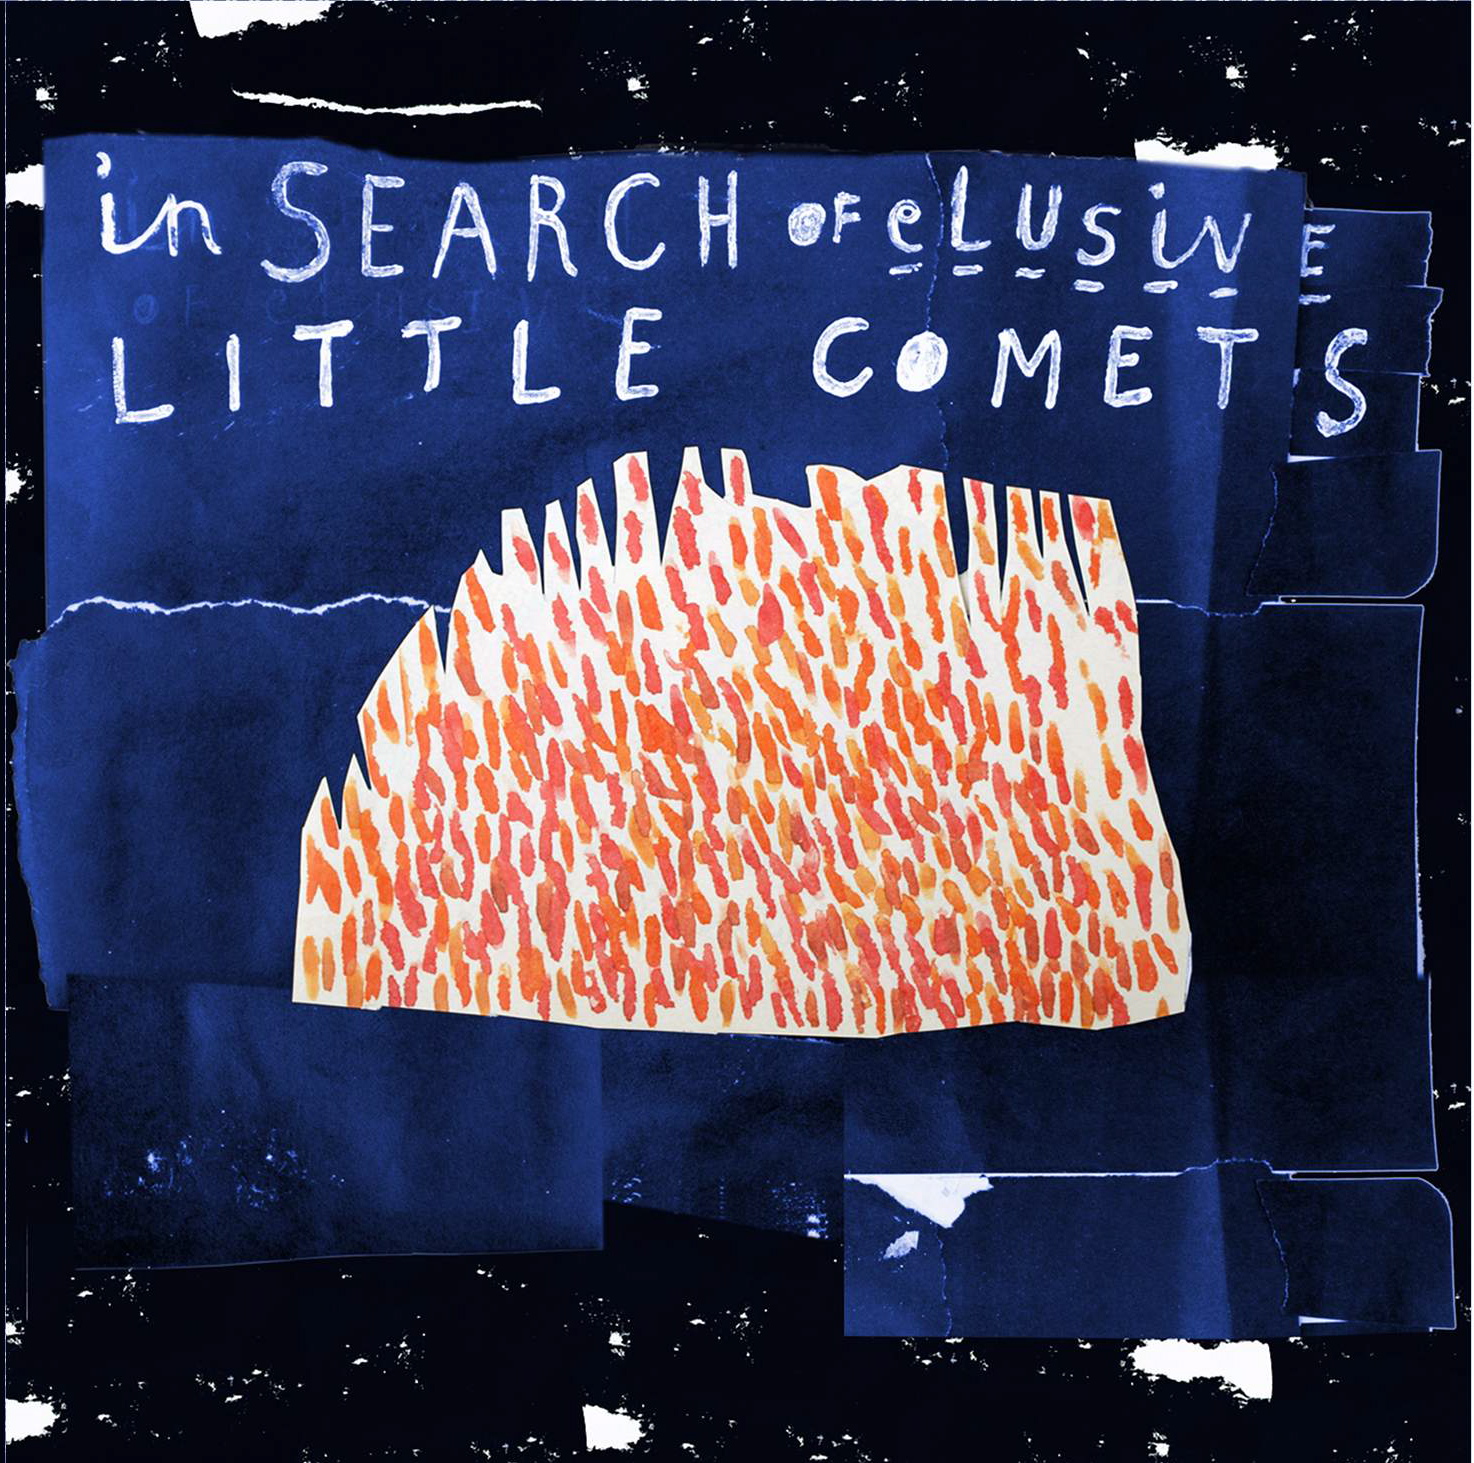 in SEARCH OF eLUsivE
LITTLE COMETS